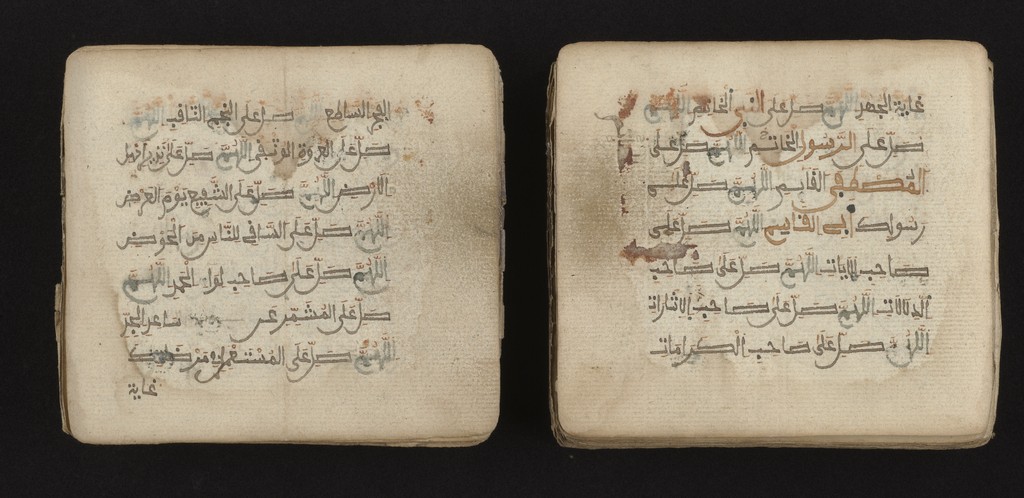 الفجر الساطع صل على النجم الثاقب اللهم
صل على العروة الوثقى اللهم صل على نذير أهل
الأرض اللهم صل على الشفيع يوم العرض
اللهم صل على الساقي للناس من الحوض
اللهم صل على صاحب لواء الحمد اللهم
صل على المشمر عن ساعد الجد
اللهم صل على المستعمل في مرضاتك
غاية
غاية الجهد اللهم صل على النبي الخاتم اللهم
صل على الرسول الخاتم اللهم صل على
المصطفى القايم اللهم صل على
رسولك أبي القاسم اللهم صل على
صاحب الايات اللهم صل على صاحب
الدلالات اللهم صل على صاحب الاشارات
اللهم صل على صاحب الكرامات